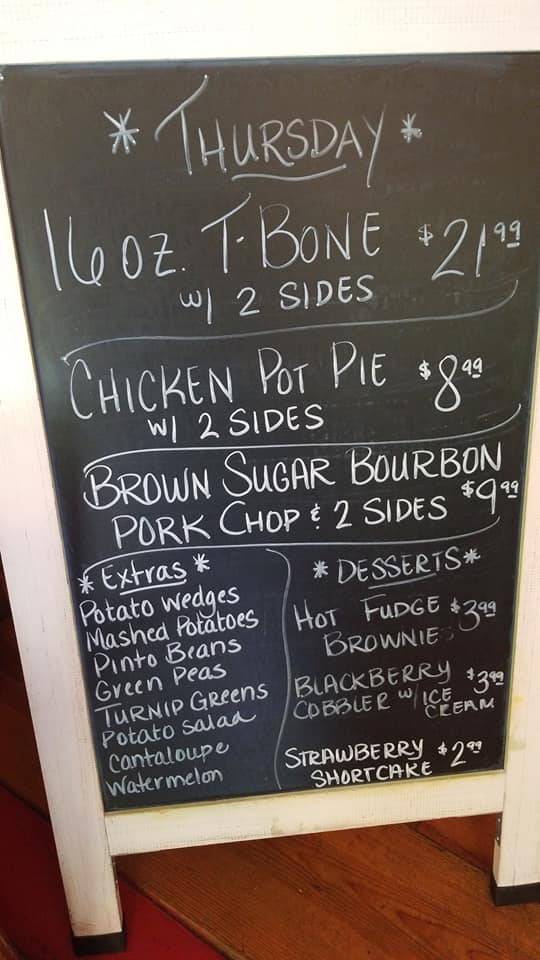 * THURSDAY *
16 OZ. T-BONE $21.99
W/ 2 SIDES
CHICKEN POT PIE $8.99
W/ 2 SIDES
BROWN SUGAR BOURBON
PORK CHOP & 2 SIDES $9.99
* Extras *
Potato Wedges
Mashed Potatoes
Pinto Beans
Green Peas
TURNIP GREENS
Potato Salad
Cantaloupe
Watermelon
* DESSERTS *
HOT FUDGE $3.99
BROWNIE
BLACKBERRY $3.99
COBBLER W/ ICE CREAM
STRAWBERRY $2.99
SHORTCAKE